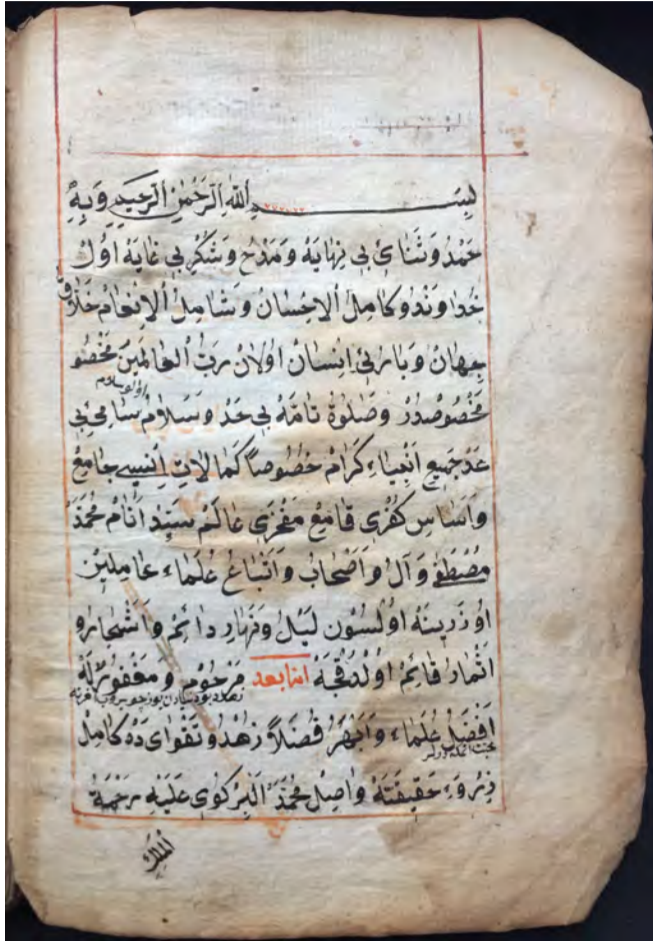 بِسْمِ اللهِ الرَّحْمٰنِ الرَّحِيمِ وَبِهِ
حَمْدُ وَثَنَائِ بِى نِهَايَهْ وَمَدْحُ وَشُكْرِ بِى غَايَهْ اوُلْ
خُدَاوَنْدُ وكَامِلُ الاِحْسَانْ وَشَامِلُ الاِنْعَامْ خَلَّاقِ
جِهَانْ وَبَارِئِ اِنْسَانْ اوُلَانْ رَبُّ العَالَمِينَ مَخْصُو
مَخْصُوصْدُرْ وَصَلٰوةُ تَامَّهْ بِى حَدْ وَسَلَامُ سَامِئِ بِى
عَدْ جَمِيعِ اَنْبِيَاءِ كِرَامْ خُصُوصاً كَمَالَاتِ اِنْسِيِيه جَامِعْ
وَاَسَاسِ كُفْرِى قَامِعْ مَفْخَرِى عَالَمْ سَيِّدِ اَنَامْ مُحَمَّدْ
مُصْطَفٰى وَ آلُ وَاَصْحَابْ وَاَتْبَاعْ عُلَمَاءِ عَامِلِينْ
اوُذَرِينَهْ اوُلْسُونْ لَيْلُ وَنَهَارْ دَائِمْ وَاَشْجَارُ
اَثْمَارْ قَائِمْ اوُلْدُقْجَهْ امّا بعد مَرْحُومْ وَ مَغْفُورٌ لَهْ
اَفْضَلِ عُلَمَاءِ وَاَبْهَرِ فُضَلَا زُهْدُ وتَقْوَاىْ دَهْ كَامِلْ
ذِرْوَءِ حَقِيقَتَهْ وَاصِلْ مُحَمَّدْ اَلْبِرْكَوِى عَلَيْهِ رَحْمَةُ
الملك